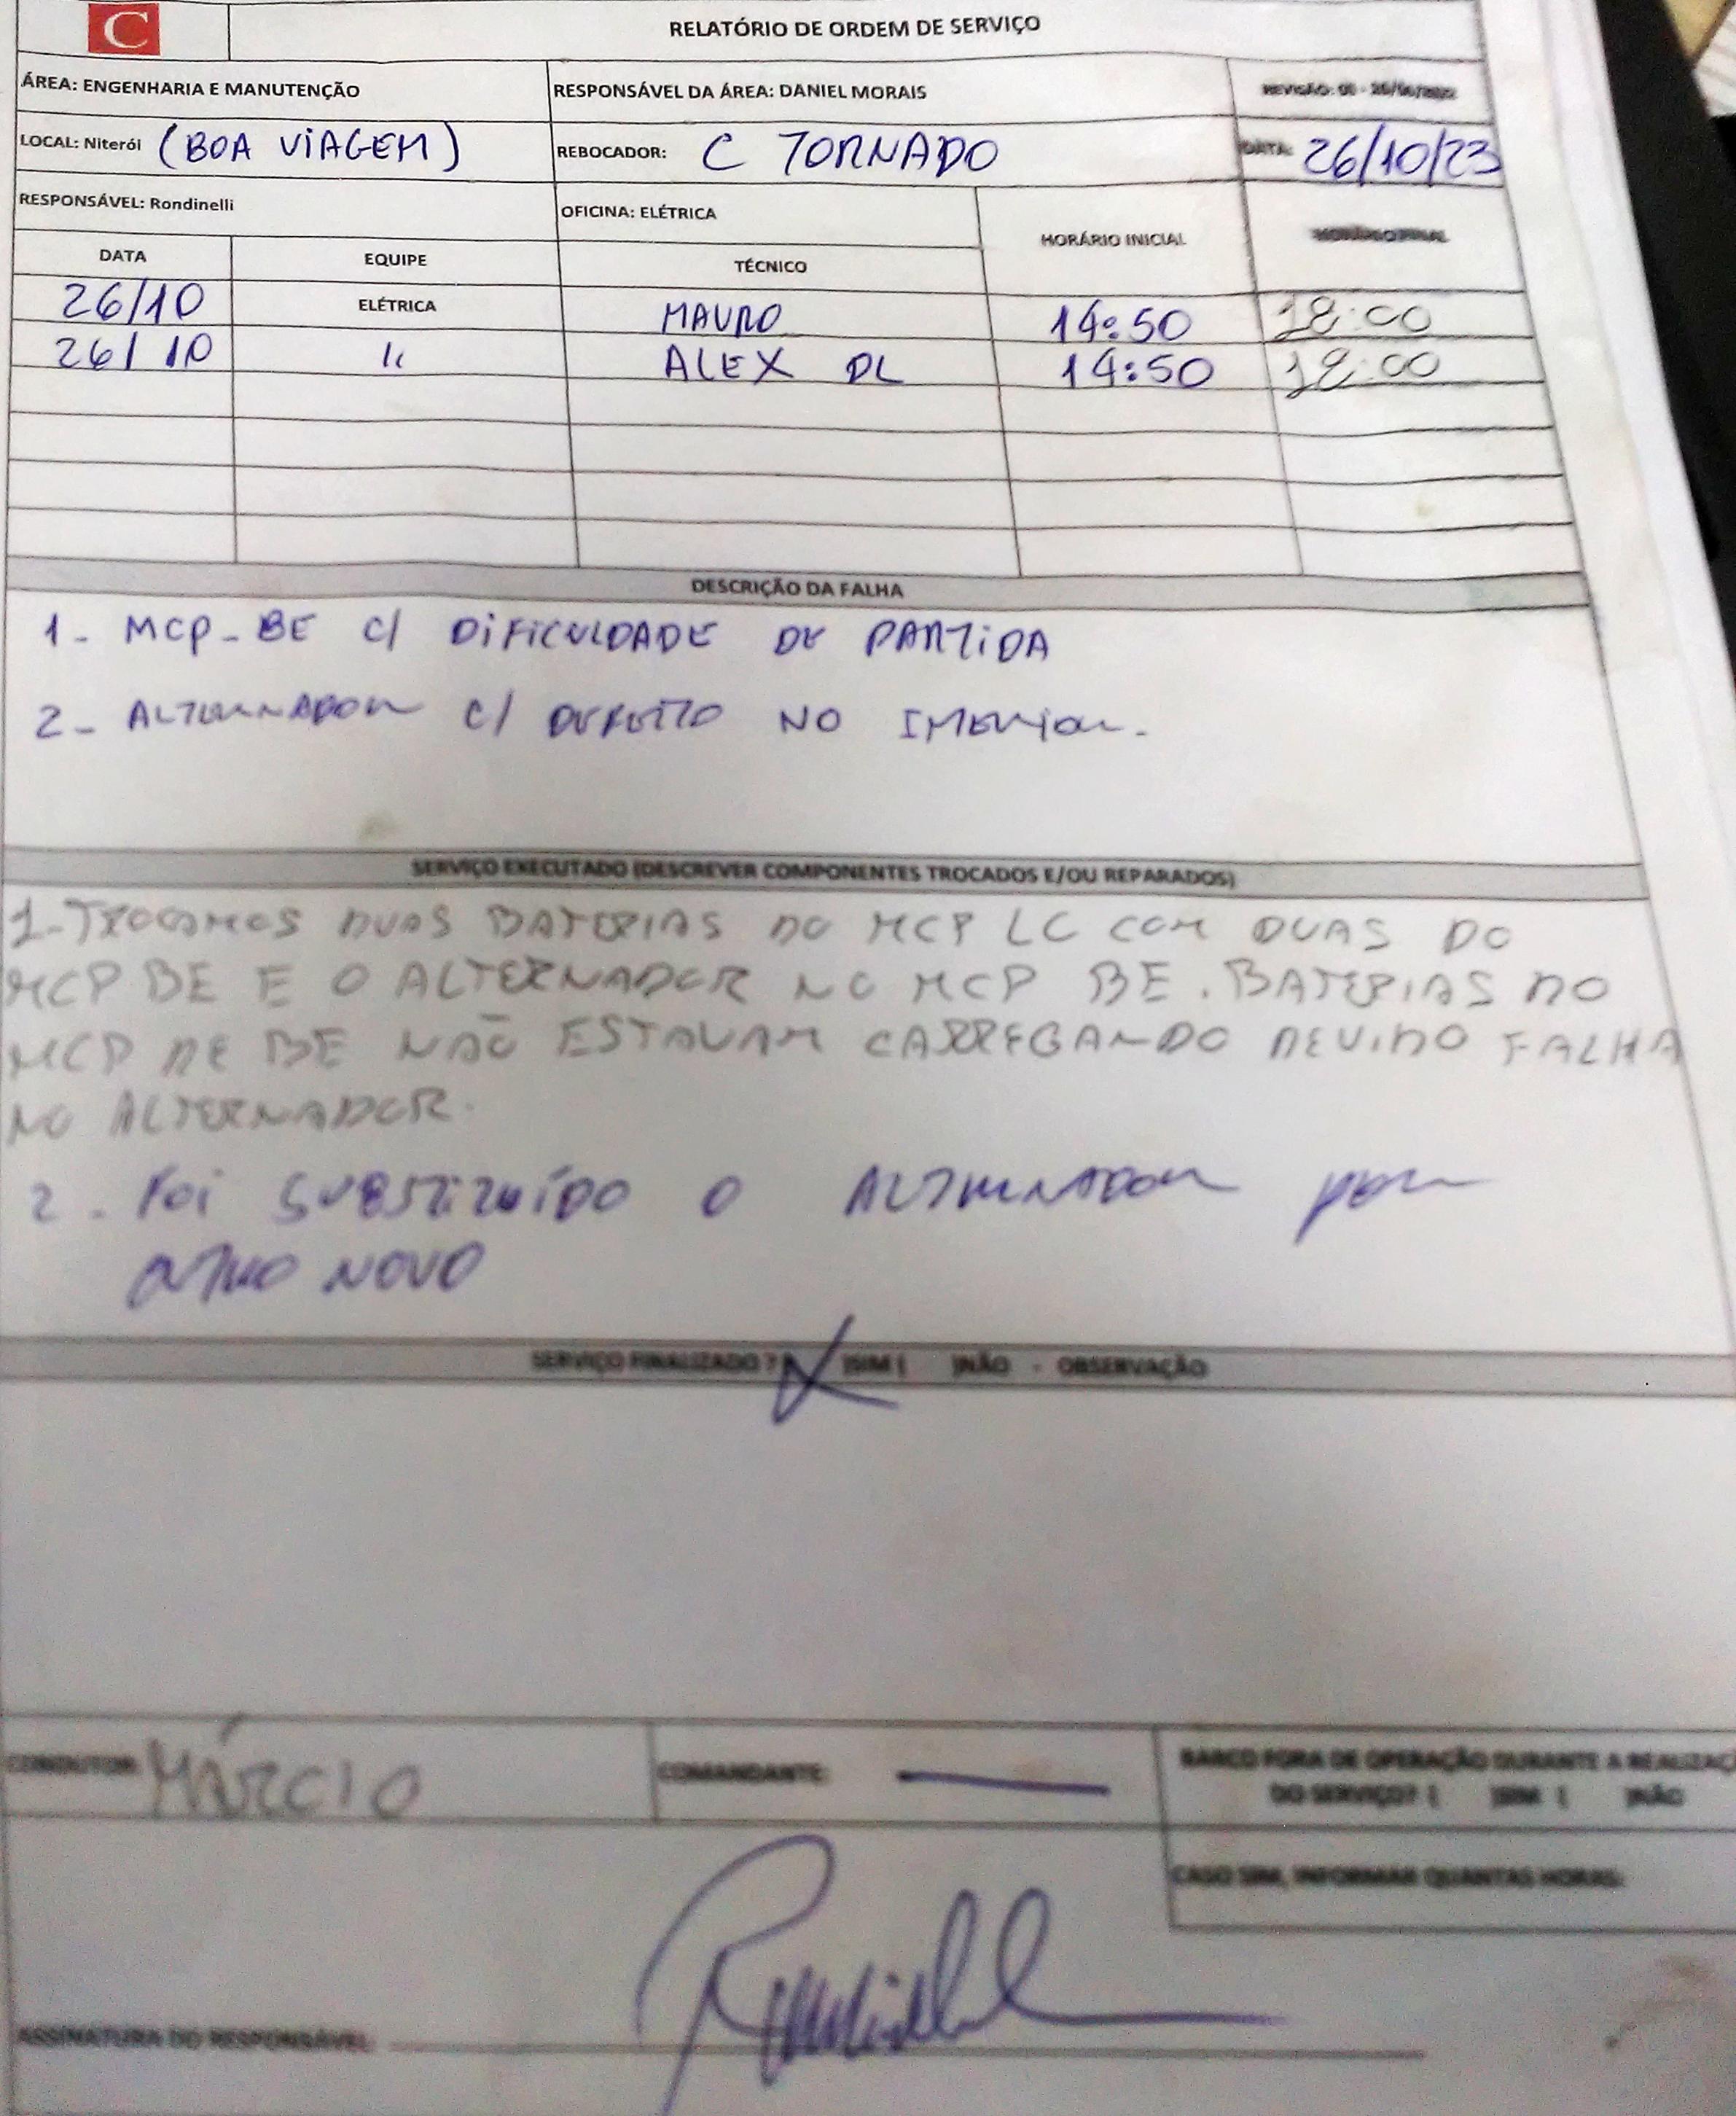 C
RELATÓRIO DE ORDEM DE SERVIÇO
ÁREA: ENGENHARIA E MANUTENÇÃO
RESPONSÁVEL DA ÁREA: DANIEL MORAIS
REVISÃO: 00 -
LOCAL: Niterói (BOA VIAGEM)
REBOCADOR: C TORNADO
DATA: 26/10/23
RESPONSÁVEL: Rondinelli
OFICINA: ELÉTRICA
HORÁRIO INICIAL
HORÁRIO FINAL
DATA EQUIPE TÉCNICO
26/10 ELÉTRICA MAURO 14:50 18:00
26/10 " ALEX DL 14:50 18:00
DESCRIÇÃO DA FALHA
1- MCP-BE C/ DIFICULDADE DE PARTIDA
2- ALTERNADOR C/ DEFEITO NO
SERVIÇO EXECUTADO (DESCREVER COMPONENTES TROCADOS E/OU REPARADOS)
1-TROCAMOS DUAS BATERIAS DO MCP LC COM DUAS DO
MCP BE E O ALTERNADOR NO MCP BE. BATERIAS DO
MCP DE BE NÃO ESTAVAM CARREGANDO DEVIDO FALHA
NO ALTERNADOR.
2- FOI SUBSTITUÍDO O ALTERNADOR POR
OUTRO NOVO
SERVIÇO FINALIZADO ? (X )SIM ( )NÃO - OBSERVAÇÃO
CONDUTOR: MÁRCIO
COMANDANTE: —
BARCO FORA DE OPERAÇÃO DURANTE A REALIZAÇ
DO SERVIÇO? ( )SIM ( )NÃO
CASO SIM, INFORMAR QUANTAS HORAS:
ASSINATURA DO RESPONSÁVEL